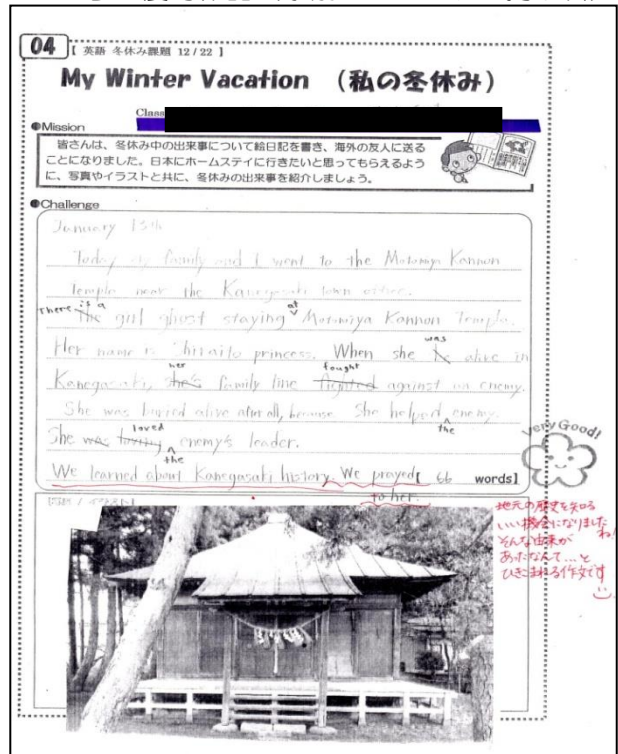 04 【 英語 冬休み課題 12/22 】
My Winter Vacation (私の冬休み)
Class
●Mission
皆さんは、冬休み中の出来事について絵日記を書き、海外の友人に送る
ことになりました。日本にホームステイに行きたいと思ってもらえるよう
に、写真やイラストと共に、冬休みの出来事を紹介しましょう。
●Challenge
January 13th
Today my family and I went to the Motomiya Kannon
Temple near the Kanegasaki town office.
There is a
The girl ghost staying at Motomiya Kannon Temple.
was
Her name is Shiraito princess. When she is alive in
her fought
Kanegasaki, she's family line fighted against an enemy.
She was buried alive after all, because She helped the enemy.
loved
She was loving the enemy's leader.
We learned about Kanegasaki history. We prayed [ 66 words]
to her.
Very Good!
地元の歴史を知る
いい機会になりました
ね!
そんな由来が
あったなんて...と
ひきこまれる作文です